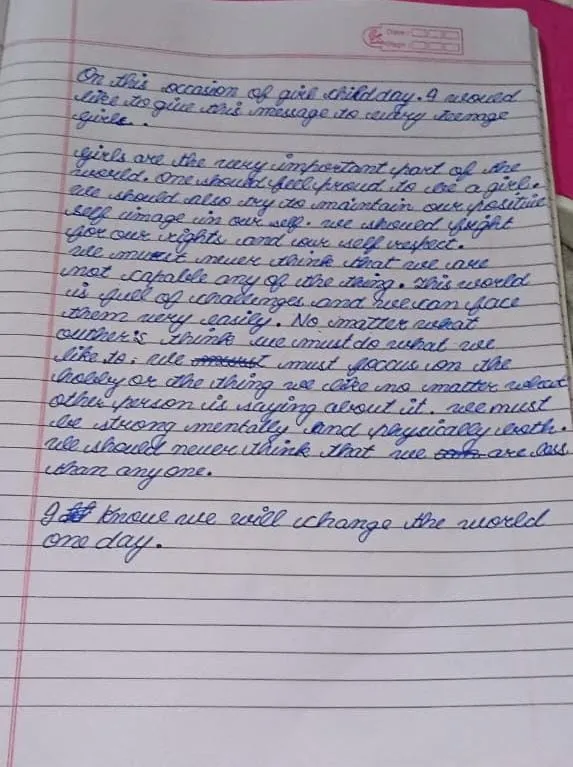 Date :
Page :
On this occasion of girl child day. I would
like to give this message to every teenage
girls.
girls are the very important part of the
world. One should feel proud to be a girl.
we should also try to maintain our positive
self image in our self. we should fight
for our rights and our self respect.
we must never think that we are
not capable any of the thing. This world
is full of challenges and we can face
them very easily. No matter what
outher's think we must do what we
like to. we must focous on the
hobby or the thing we like no matter what
other person is saying about it. we must
be strong mentally and physically both.
we should never think that we are less
than anyone.
I know we will change the world
one day.